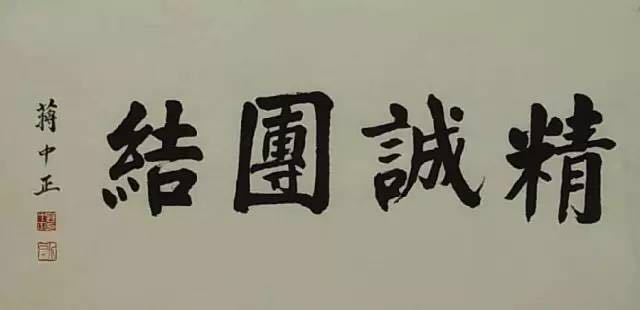 精誠團結
蔣中正